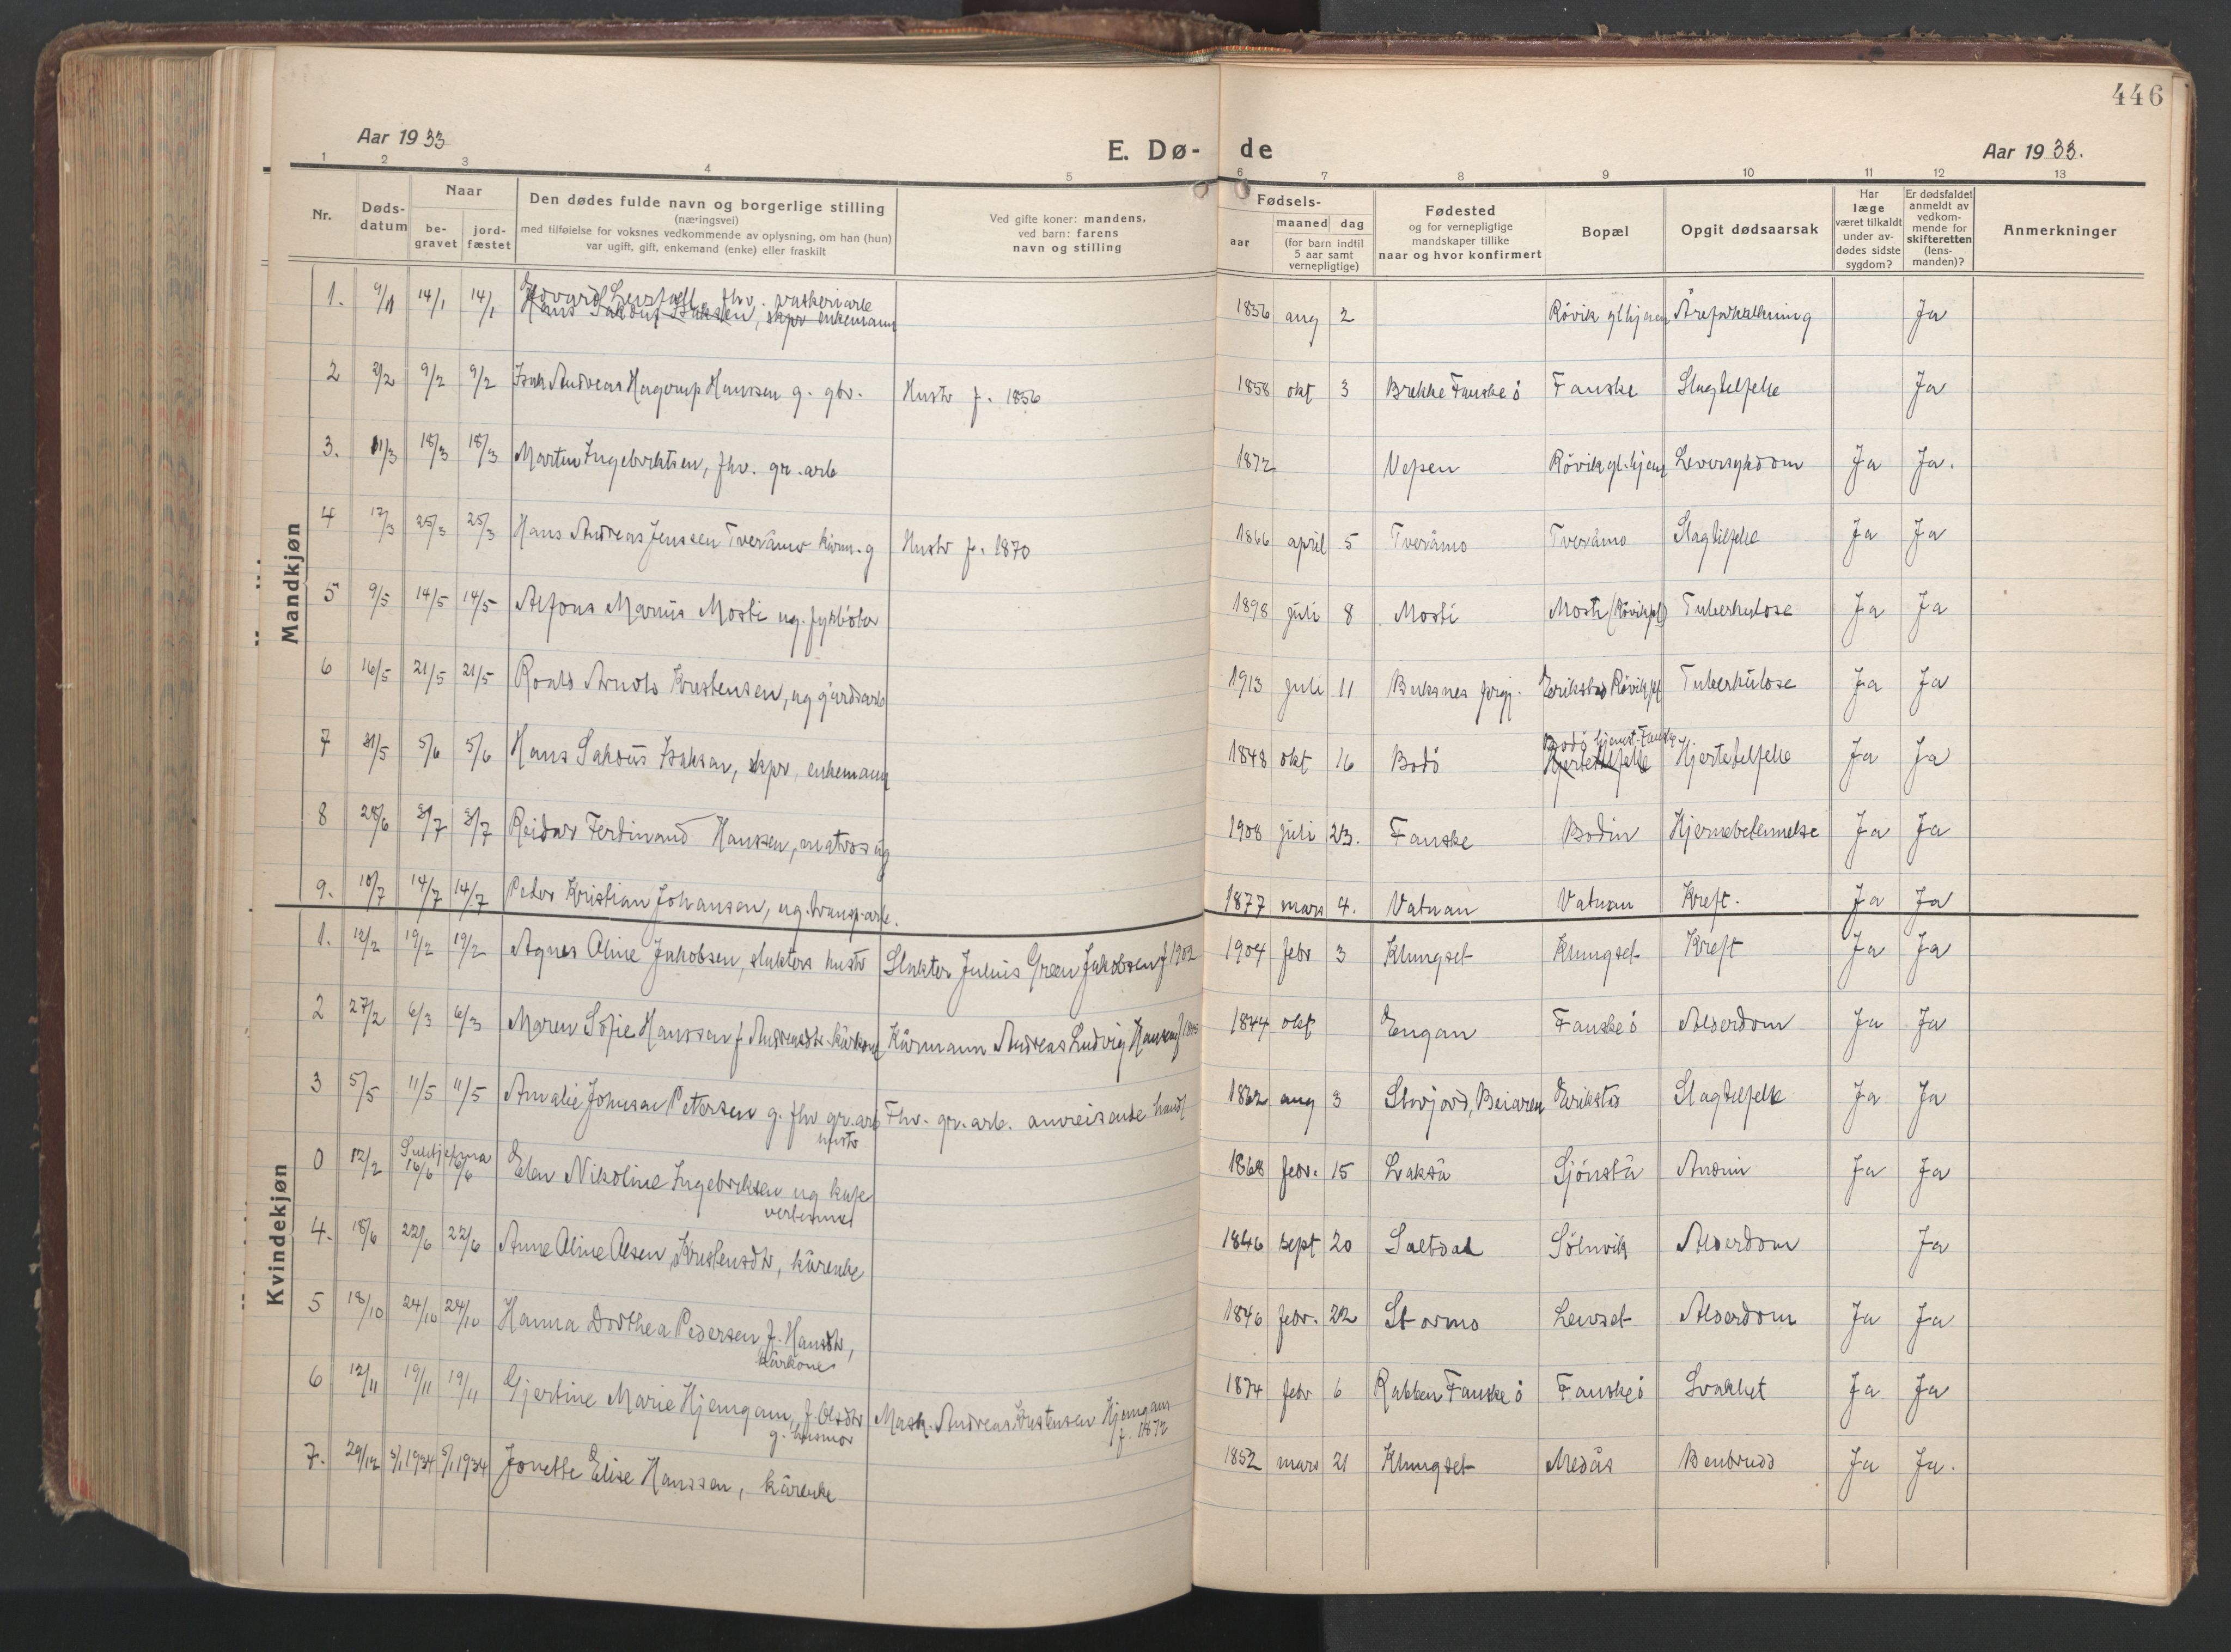 446
Aar 1933
E. Dø-
de
Aar 1933.
1 2 3 4 5 6 7 8 9 10 11 12 13
Nr.
Døds-
datum
Naar
be-
gravet
jord-
fæstet
Den dødes fulde navn og borgerlige stilling
(næringsvei)
med tilføielse for voksnes vedkommende av oplysning, om han (hun)
var ugift, gift, enkemand (enke) eller fraskilt
Ved gifte koner: mandens,
ved barn: farens
navn og stilling
Fødsels-
aar
maaned dag
(for barn indtil
5 aar samt
vernepligtige)
Fødested
og for vernepligtige
mandskaper tillike
naar og hvor konfirmert
Bopæl
Opgit dødsaarsak
Har
læge
været tilkaldt
under av-
dødes sidste
sygdom?
Er dødsfaldet
anmeldt av
vedkom-
mende for
skifteretten
(lens-
manden)?
Anmerkninger
Mandkjøn
1. 9/1 14/1 14/1 Edvard fhv.
Hans Sakous Isaksen, skpr enkemann 1856 aug 2 Røvik glhjem Åreforkalkning Ja
2 2/2 9/2 9/2 Isak Andreas Hagerup Hanssen g. gbr. Hustr f. 1856 1858 okt 3 Brekke Fauske ö Fauske Slagtilfelle Ja
3. 11/3 18/3 18/3 Martin Ingebriktsen, fhv. gr. arb 1872 Vefsen Røvik gl.hjem Leversykdom Ja Ja.
4 17/3 25/3 25/3 Hans Andreas Jenssen Tveråmo kårm. g Hustr f. 1870 1866 april 5 Tveråmo Tveråmo Slagtilfelle Ja Ja
5 9/5 14/5 14/5 Alfons Marius Mosti ug. fyrbøter 1898 juli 8 Mosti Mosti (Røvik pl) Tuberkulose Ja Ja
6 16/5 21/5 21/5 Roald Arnold Kristensen, ug gårdsarb 1913 juli 11 Buksnes prgj. Erikstad Røvik pl Tuberkulose Ja Ja
7 31/5 5/6 5/6 Hans Sakous Isaksen, skpr, enkemann 1848 okt 16 Bodö Bodö hjemst. Fauske
Hjertetilfelle Hjertetilfelle Ja Ja
8 28/6 3/7 3/7 Reidar Ferdinand Hansen, matros ug 1908 juli 23. Fauske Bodin Hjernebetennelse Ja Ja
9. 10/7 14/7 14/7 Peder Kristian Johansen, ug. transp. arb. 1877 mars 4. Vatnan Vatnan Kreft. Ja Ja
Kvindekjøn
1. 12/2 19/2 19/2 Agnes Oline Jakobsen, slakters hustr Slakter Julius Green Jakobsen f 1902 1904 febr 3 Klungset Klungset Kreft Ja Ja
2 27/2 6/3 6/3 Maren Sofie Hanssen f. Andreasdtr kårkone Kårmann Andreas Ludvig Hanssen f 1844 okt Engan Fauske ö Alderdom Ja Ja
3 5/5 11/5 11/5 Amalie Johnsen Petersen g. fhv gr. arb
hustr Fhv. gr. arb. omreisende handl 1862 aug 3 Storjord, Beiaren Erikstad Slagtilfelle Ja Ja
0 12/2 Sulitjelma
16/6 16/6 Elen Nikoline Ingebriktsen ug kafe
vertinne 1868 febr. 15 Lakså Sjönstå Ja Ja
4. 18/6 22/6 22/6 Anne Oline Olsen Kristensdtr, kårenke 1846 sept 20 Saltdal Sölnvik Alderdom Ja
5 18/10 24/10 24/10 Hanna Dorthea Pedersen f. Hansdtr,
kårkone 1846 febr. 22 Stormo Leivset Alderdom Ja Ja
6 12/11 19/11 19/11 Gjertine Marie Hjemgam, f. Olsdtr
g. husmor Mask. Andreas Kristensen Hjemgam
f. 1872 1874 febr 6 Rabben Fauske ö Fauske ö Svakhet Ja Ja
7. 29/12 5/1 1934 5/1 1934 Jonette Elise Hanssen, kårenke 1852 mars 21 Klungset Medås Benbrudd Ja Ja.